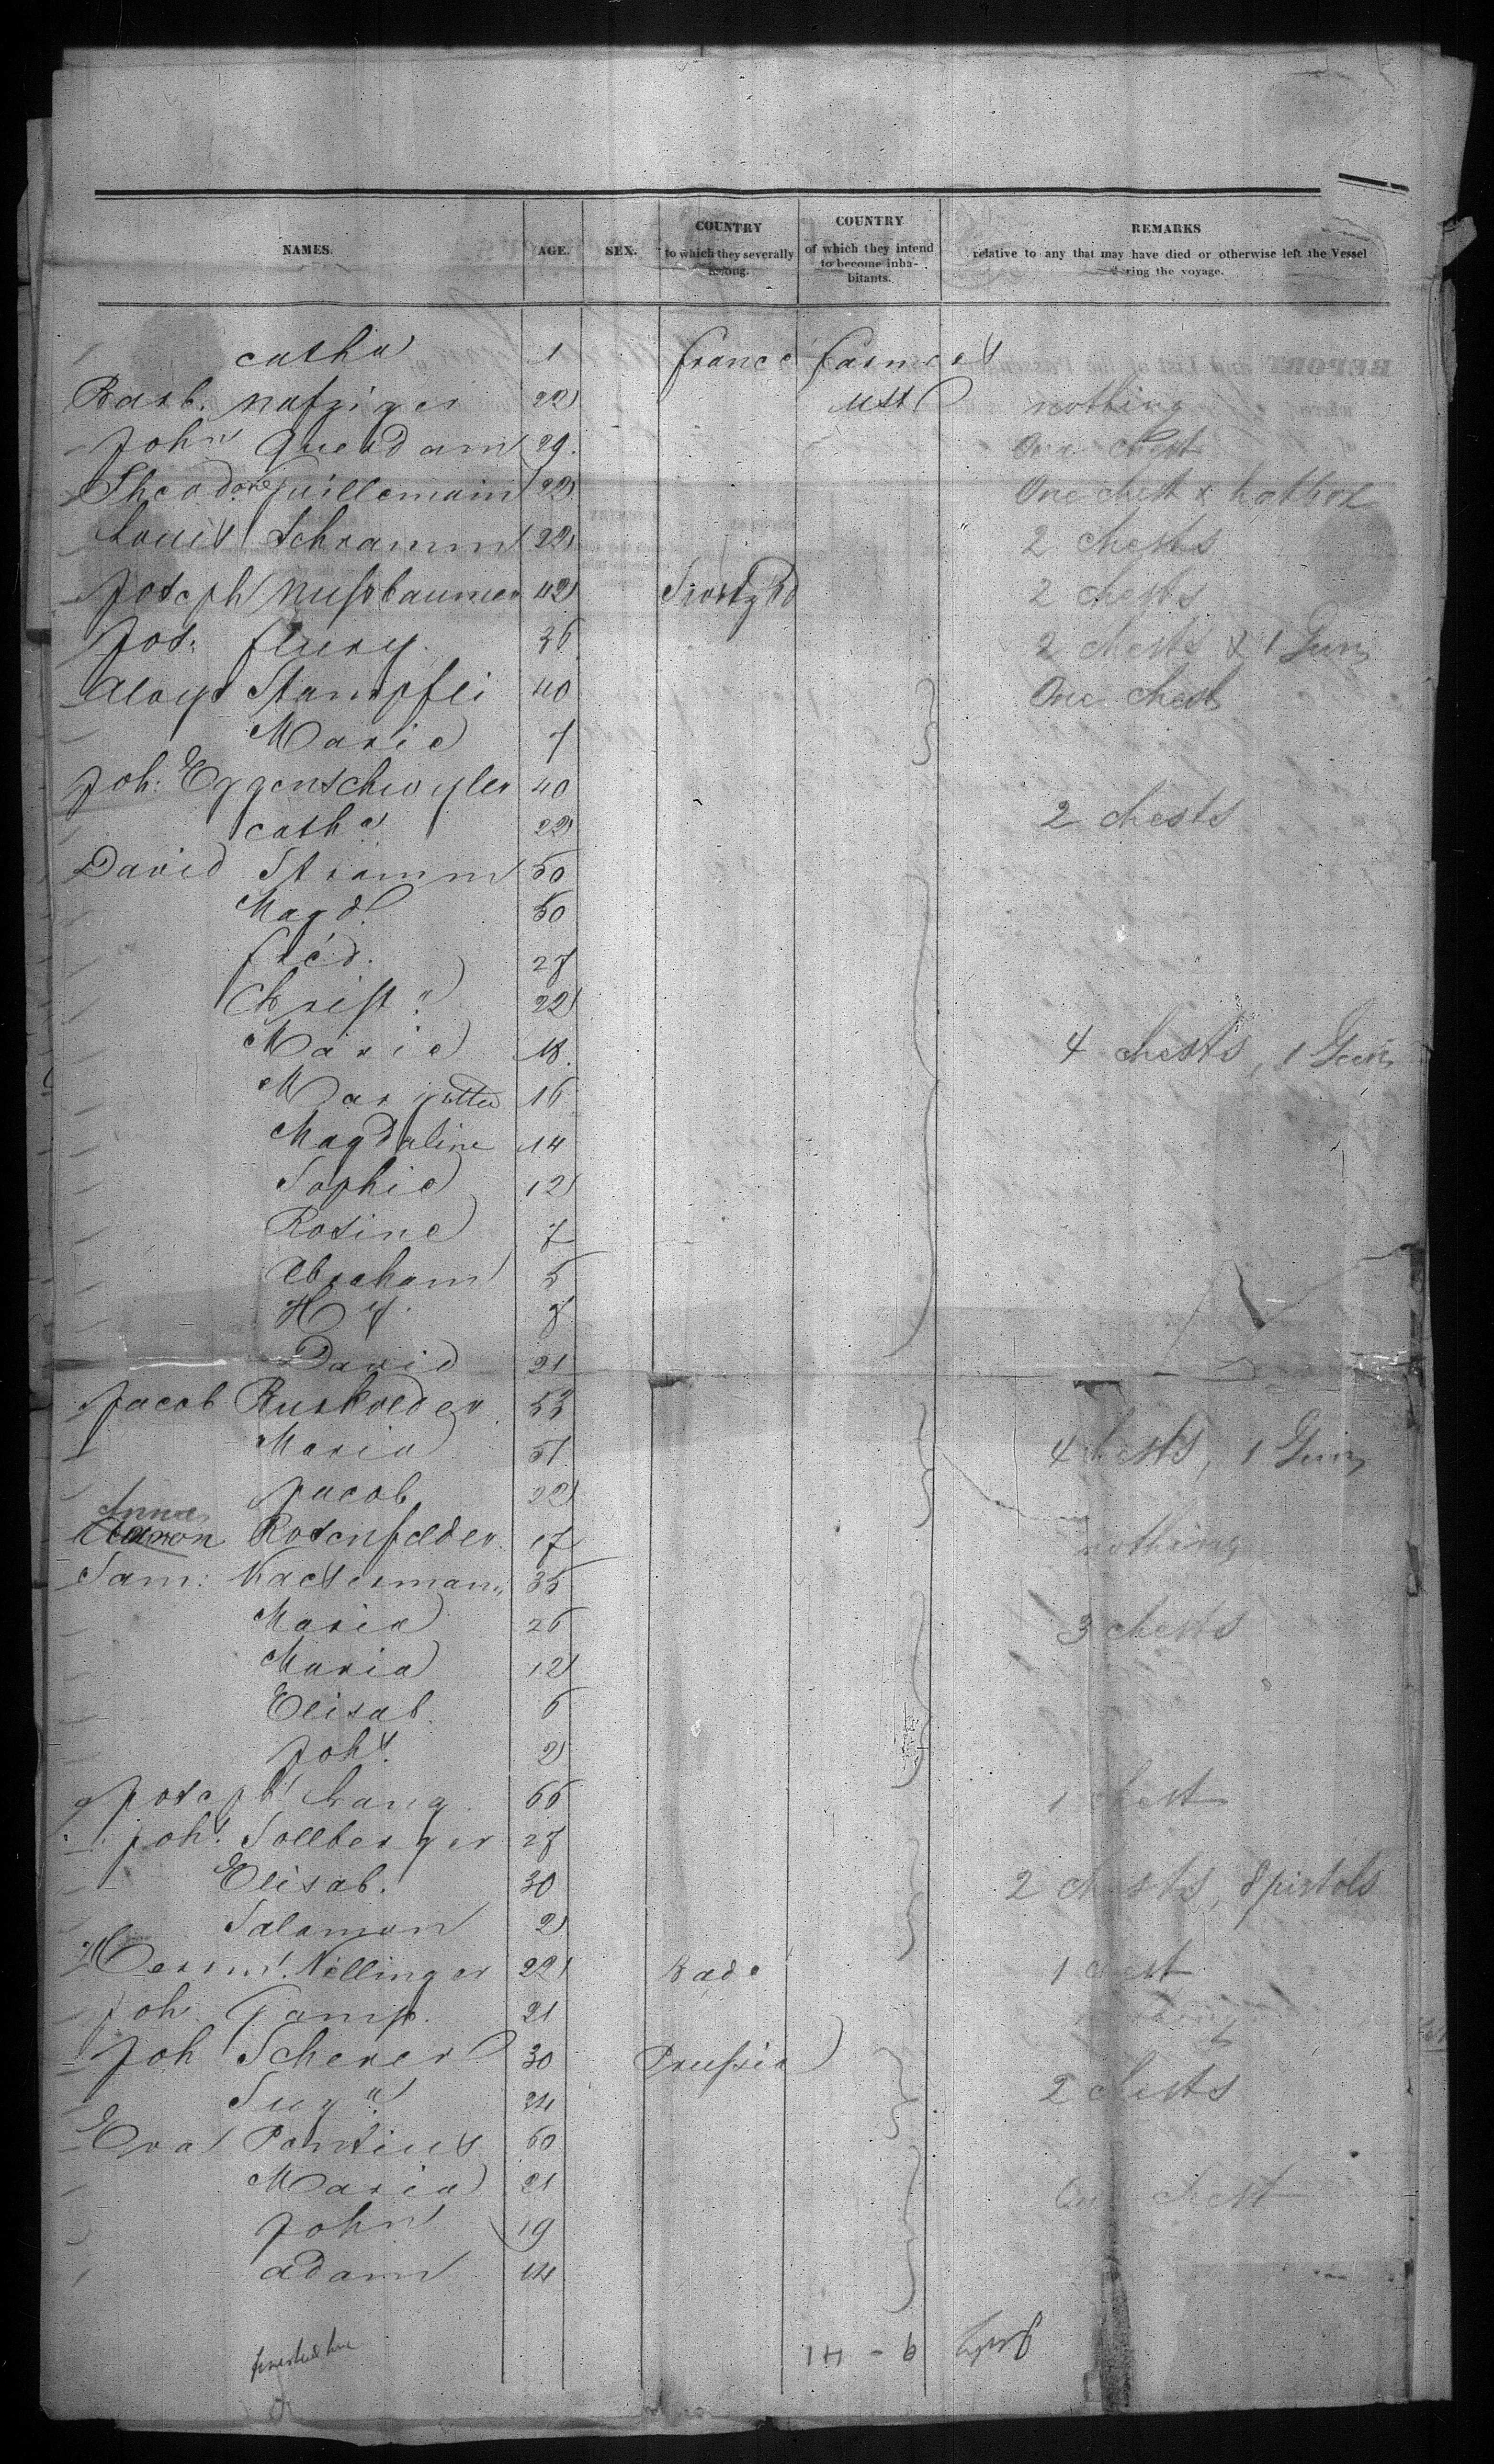 NAMES. AGE. SEX. COUNTRY to which they severally belong. COUNTRY of which they intend to become inhabitants. REMARKS relative to any that may have died or otherwise left the Vessel during the voyage.
Catha 1 France farmers
Barb. Nafziger 22 nothing
John Querdam 29. One chest
Theodore Guillemain 22 One chest & hatbox
Louis Schramm 22 2 chests
Joseph Nussbaumer 42 2 chests
Jos: Fleury. 36 2 chests & 1 Gun
Aloys Stampfli 40 One chest
Marie 7
Joh: Eggenschwyler 40
Catha 22 2 chests
David Stramm 50
Magd. 50
fréd. 27
Christn 22
Marie 18. 4 chests, 1 Gun
Margutta 16
Magdaline 14
Sophie 12
Rosine 7
Abraham 5
Hy. 7
David 21
Jacob Burkolder 53
Maria 51 4 chests, 1 Gun
Jacob 22
Anna
Aaron Rosenfelder. 17 nothing
Sam: Wassermann 35
Maria 26 3 chests
Maria 12
Elisab. 6
Johs. 2
Joseph Lang. 66 1 chest
Johs. Sollberger 27
Elisab. 30 2 chests, 8 pistols
Salamon 2
Hermn. Nellinger 22 Bade 1 chest
Joh. Gamp. 21
Joh Scherer 30 Prussia
24 2 chests
Eva Pontius 60
Maria 21 One chest
John 19
Adam 14
9 - 41